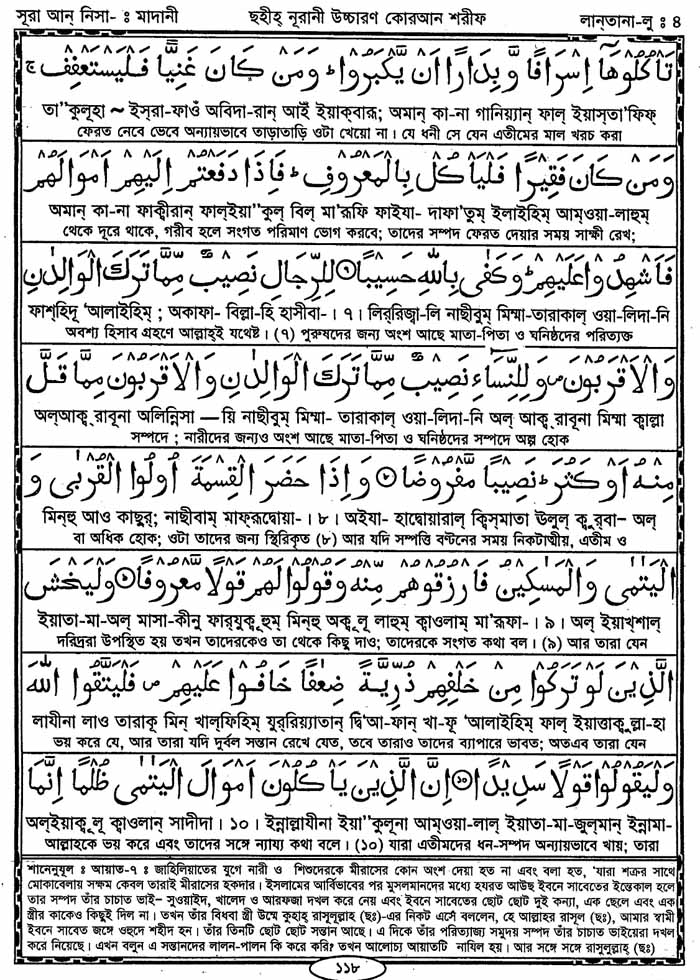 সূরা আন্ নিসা- ঃ মাদানী ছহীহ্ নূরানী উচ্চারণ কোরআন শরীফ লান্‌তানা-লু ঃ ৪
تَأْكُلُوْهَآ اِسْرَافًا وَّبِدَارًا اَنْ يَّكْبَرُوْا ؕ وَمَنْ كَانَ غَنِيًّا فَلْيَسْتَعْفِفْ ۚ
তা''কুলূহা ~ ইস্‌রা-ফাওঁ অবিদা-রান্ আইঁ ইয়াক্‌বারূ; অমান্ কা-না গানিয়্যান্ ফাল্ ইয়াস্‌তা'ফিফ্
ফেরত নেবে ভেবে অন্যায়ভাবে তাড়াতাড়ি ওটা খেয়ো না। যে ধনী সে যেন এতীমের মাল খরচ করা
وَمَنْ كَانَ فَقِيْرًا فَلْيَأْكُلْ بِالْمَعْرُوْفِ ؕ فَاِذَا دَفَعْتُمْ اِلَيْهِمْ اَمْوَالَهُمْ
অমান্ কা-না ফাক্বীরান্ ফাল্‌ইয়া''কুল্ বিল্ মা'রূফি ফাইযা- দাফা'তুম্ ইলাইহিম্ আম্‌ওয়া-লাহুম্
থেকে দূরে থাকে, গরীব হলে সংগত পরিমাণ ভোগ করবে; তাদের সম্পদ ফেরত দেয়ার সময় সাক্ষী রেখ;
فَاَشْهِدُوْا عَلَيْهِمْ ؕ وَكَفٰى بِاللّٰهِ حَسِيْبًا ۝۶ لِلرِّجَالِ نَصِيْبٌ مِّمَّا تَرَكَ الْوَالِدٰنِ
ফাশ্‌হিদূ 'আলাইহিম্ ; অকাফা- বিল্লা-হি হাসীবা-। ৭। লির্‌রিজ্বা-লি নাছীবুম্ মিম্মা-তারাকাল্ ওয়া-লিদা-নি
অবশ্য হিসাব গ্রহণে আল্লাহ্‌ই যথেষ্ট। (৭) পুরুষদের জন্য অংশ আছে মাতা-পিতা ও ঘনিষ্ঠদের পরিত্যক্ত
وَالْاَقْرَبُوْنَ ۪ وَلِلنِّسَآءِ نَصِيْبٌ مِّمَّا تَرَكَ الْوَالِدٰنِ وَالْاَقْرَبُوْنَ مِمَّا قَلَّ
অল্‌আক্ব্‌রাবূনা অলিন্নিসা —য়ি নাছীবুম্ মিম্মা- তারাকাল্ ওয়া-লিদা-নি অল্ আক্ব্‌রাবূনা মিম্মা ক্বাল্লা
সম্পদে ; নারীদের জন্যও অংশ আছে মাতা-পিতা ও ঘনিষ্ঠদের সম্পদে অল্প হোক
مِنْهُ اَوْ كَثُرَ ؕ نَصِيْبًا مَّفْرُوْضًا ۝۷ وَاِذَا حَضَرَ الْقِسْمَةَ اُولُوا الْقُرْبٰى وَ
মিন্‌হু আও কাছুর্; নাছীবাম্ মাফ্‌রূদ্বোয়া-। ৮। অইযা- হাদ্বোয়ারাল্ ক্বিস্‌মাতা উলুল্ ক্বুর্‌বা− অল্
বা অধিক হোক; ওটা তাদের জন্য স্থিরিকৃত (৮) আর যদি সম্পত্তি বণ্টনের সময় নিকটাত্মীয়, এতীম ও
الْيَتٰمٰى وَالْمَسٰكِيْنُ فَارْزُقُوْهُمْ مِّنْهُ وَقُوْلُوْا لَهُمْ قَوْلًا مَّعْرُوْفًا ۝۸ وَلْيَخْشَ
ইয়াতা-মা-অল্ মাসা-কীনু ফার্‌যুক্বূহুম্ মিন্‌হু অক্বূলূ লাহুম্ ক্বাওলাম্ মা'রূফা-। ৯। অল্ ইয়াখ্‌শাল্
দরিদ্ররা উপস্থিত হয় তখন তাদেরকেও তা থেকে কিছু দাও; তাদেরকে সংগত কথা বল। (৯) আর তারা যেন
الَّذِيْنَ لَوْ تَرَكُوْا مِنْ خَلْفِهِمْ ذُرِّيَّةً ضِعٰفًا خَافُوْا عَلَيْهِمْ ۪ فَلْيَتَّقُوا اللّٰهَ
লাযীনা লাও তারাকূ মিন্ খাল্‌ফিহিম্ যুর্‌রিয়্যাতান্ দ্বি'আ-ফান্ খা-ফূ 'আলাইহিম্ ফাল্ ইয়াত্তাক্বুল্লা-হা
ভয় করে যে, আর তারা যদি দুর্বল সন্তান রেখে যেত, তবে তারাও তাদের ব্যাপারে ভাবত; অতএব তারা যেন
وَلْيَقُوْلُوْا قَوْلًا سَدِيْدًا ۝۹ اِنَّ الَّذِيْنَ يَأْكُلُوْنَ اَمْوَالَ الْيَتٰمٰى ظُلْمًا اِنَّمَا
অল্‌ইয়াক্বূলূ ক্বাওলান্ সাদীদা। ১০। ইন্নাল্লাযীনা ইয়া''কুলূনা আম্‌ওয়া-লাল্ ইয়াতা-মা-জুল্‌মান্ ইন্নামা-
আল্লাহকে ভয় করে এবং তাদের সঙ্গে ন্যায্য কথা বলে। (১০) যারা এতীমদের ধন-সম্পদ অন্যায়ভাবে খায়; তারা
শানেনুযূল ঃ আয়াত-৭ ঃ জাহিলিয়াতের যুগে নারী ও শিশুদেরকে মীরাসের কোন অংশ দেয়া হত না এবং বলা হত, 'যারা শত্রুর সাথে
মোকাবেলায় সক্ষম কেবল তারাই মীরাসের হকদার। ইসলামের আর্বিভাবের পর মুসলমানদের মধ্যে হযরত আউছ ইবনে সাবেতের ইন্তেকাল হলে
তার সম্পদ তাঁর চাচাত ভাই− সুওয়াইদ, খালেদ ও আরফজা দখল করে নেয় এবং ইবনে সাবেতের ছোট ছোট দুই কন্যা, এক ছেলে এবং এক
স্ত্রীর কাকেও কিছুই দিল না। তখন তাঁর বিধবা স্ত্রী উম্মে কুহাহ্ রাসূলুল্লাহ (ছঃ)-এর নিকট এসে বললেন, হে আল্লাহর রাসূল (ছঃ), আমার স্বামী
ইবনে সাবেত জঙ্গে ওহুদে শহীদ হন। তাঁর তিনটি ছোট ছোট সন্তান আছে। এ দিকে তাঁর পরিত্যাজ্য সমুদয় সম্পদ তাঁর চাচাত ভাইয়েরা দখল
করে নিয়েছে। এখন বলুন এ সন্তানদের লালন-পালন কি করে করি? তখন আলোচ্য আয়াতটি নাযিল হয়। আর সঙ্গে সঙ্গে রাসূলুল্লাহ্ (ছঃ)
১১৮